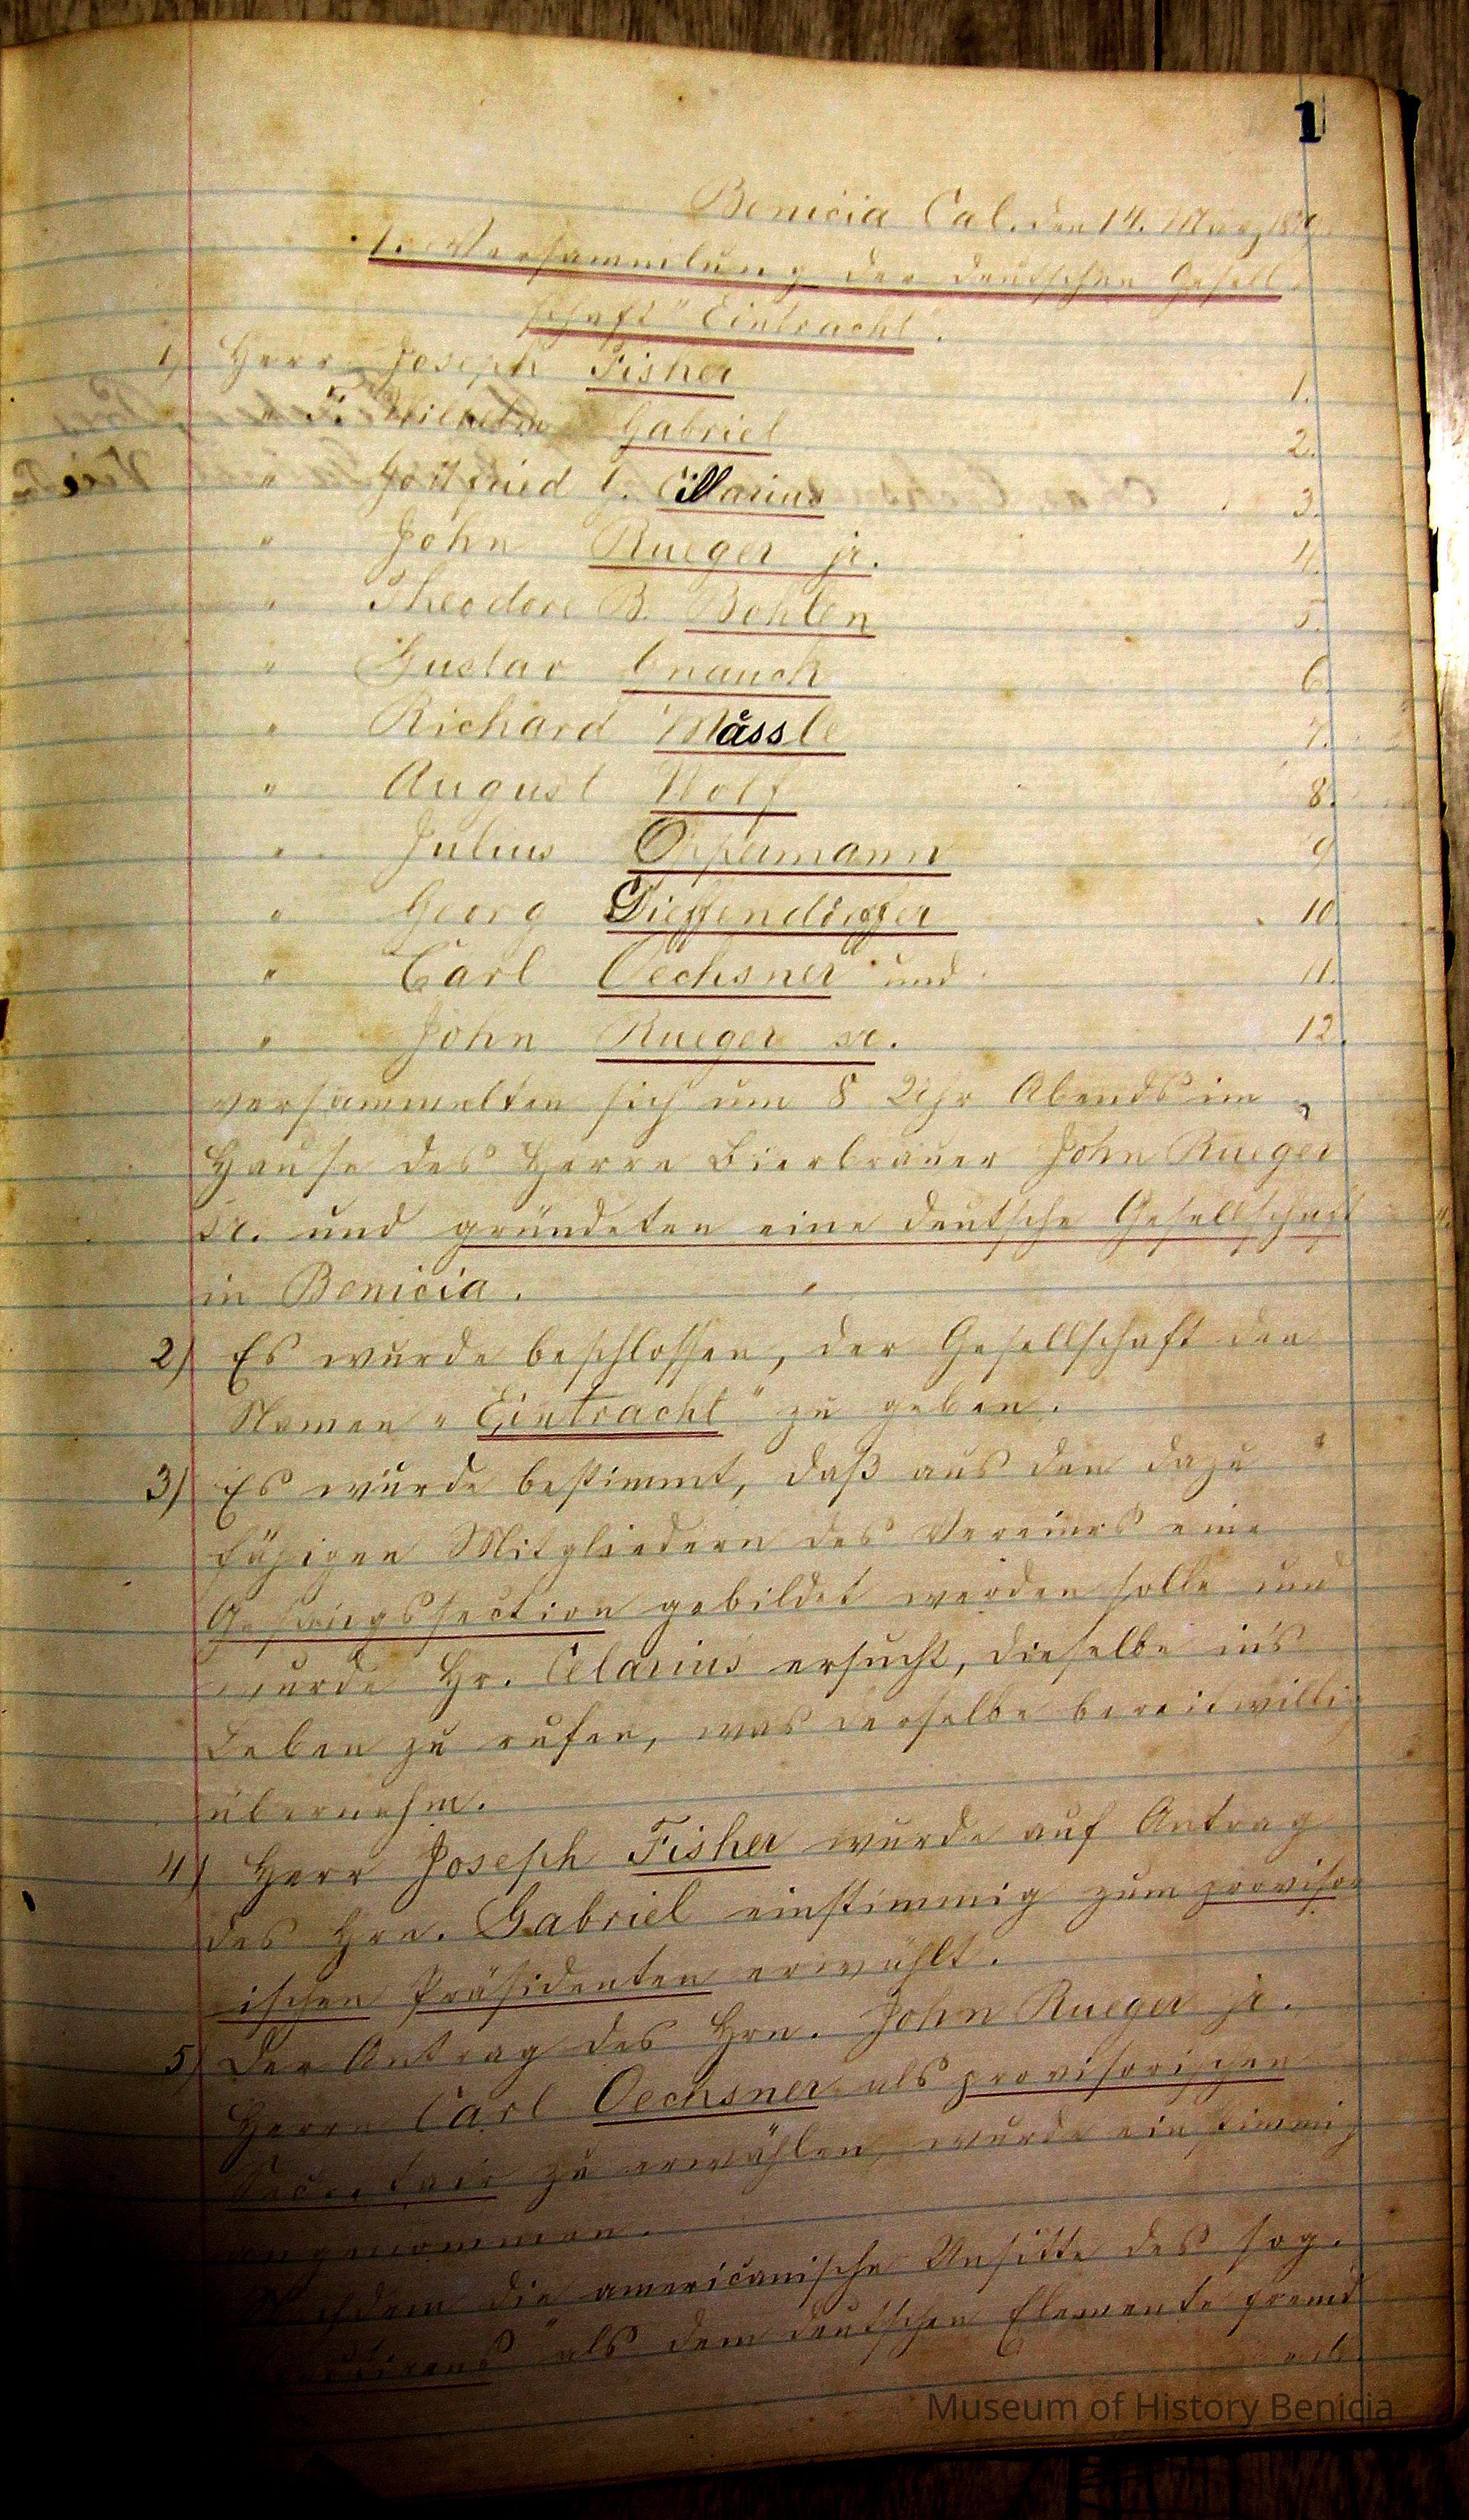 1
Benicia Cal. den 14. März
1. Versammlung der deutschen Gesell-
schaft "Eintracht".
1) Herr Joseph Fisher 1.
" F. Wilhelm Gabriel 2.
" Gottfried C. 3.
" John Rueger jr. 4.
" Theodore B. Bohlen 5.
" Gustav Gnauck 6.
" Richard Mässle 7.
" August Wolf 8.
" Julius Oppermann 9
" Georg 10.
" Carl Oechsner und 11.
" John Rueger sr. 12.
versammelten sich um 8 Uhr Abends im
Hause des Herrn Bierbrauer John Rueger
sr. und gründeten eine deutsche Gesellschaft
in Benicia.
2) Es wurde beschlossen, der Gesellschaft den
Namen "Eintracht" zu geben.
3) Es wurde bestimmt, daß aus den dazu
fähigen Mitgliedern des Vereines eine
Gesangssection gebildet werden solle und
wurde Hr. Clarius ersucht, dieselbe in's
Leben zu rufen, was derselbe bereitwillig
übernahm.
4) Herr Joseph Fisher wurde auf Antrag
des Hrn. Gabriel einstimmig zum provisor-
ischen Präsidenten erwählt.
5) Der Antrag des Hrn. John Rueger jr.
Herrn Carl Oechsner als provisorischen
Secretair zu erwählen, wurde einstimmig
angenommen.
Nachdem die americanische Unsitte des sog.
als dem deutschen Elemente fremd
Museum of History Benicia